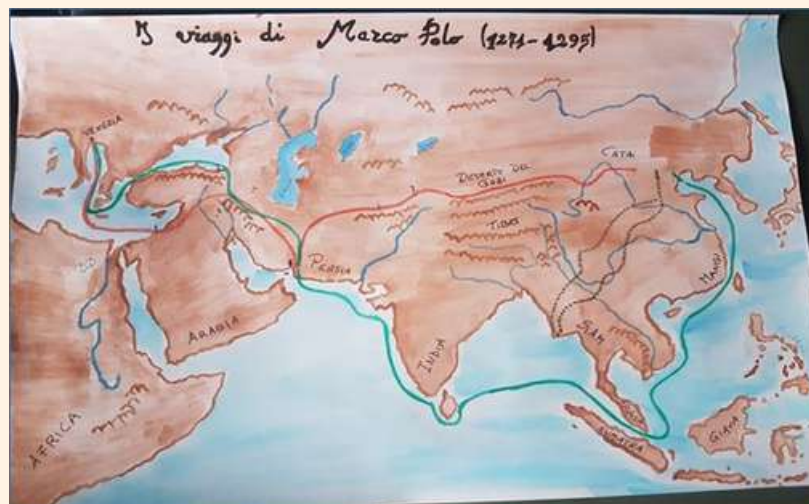 I viaggi di Marco Polo (1271-1295)
VENEZIA
CATAI
DESERTO DEL
GOBI
TIBET
PERSIA
MANGI
ARABIA
INDIA
SIAM
AFRICA
SUMATRA
GIAVA